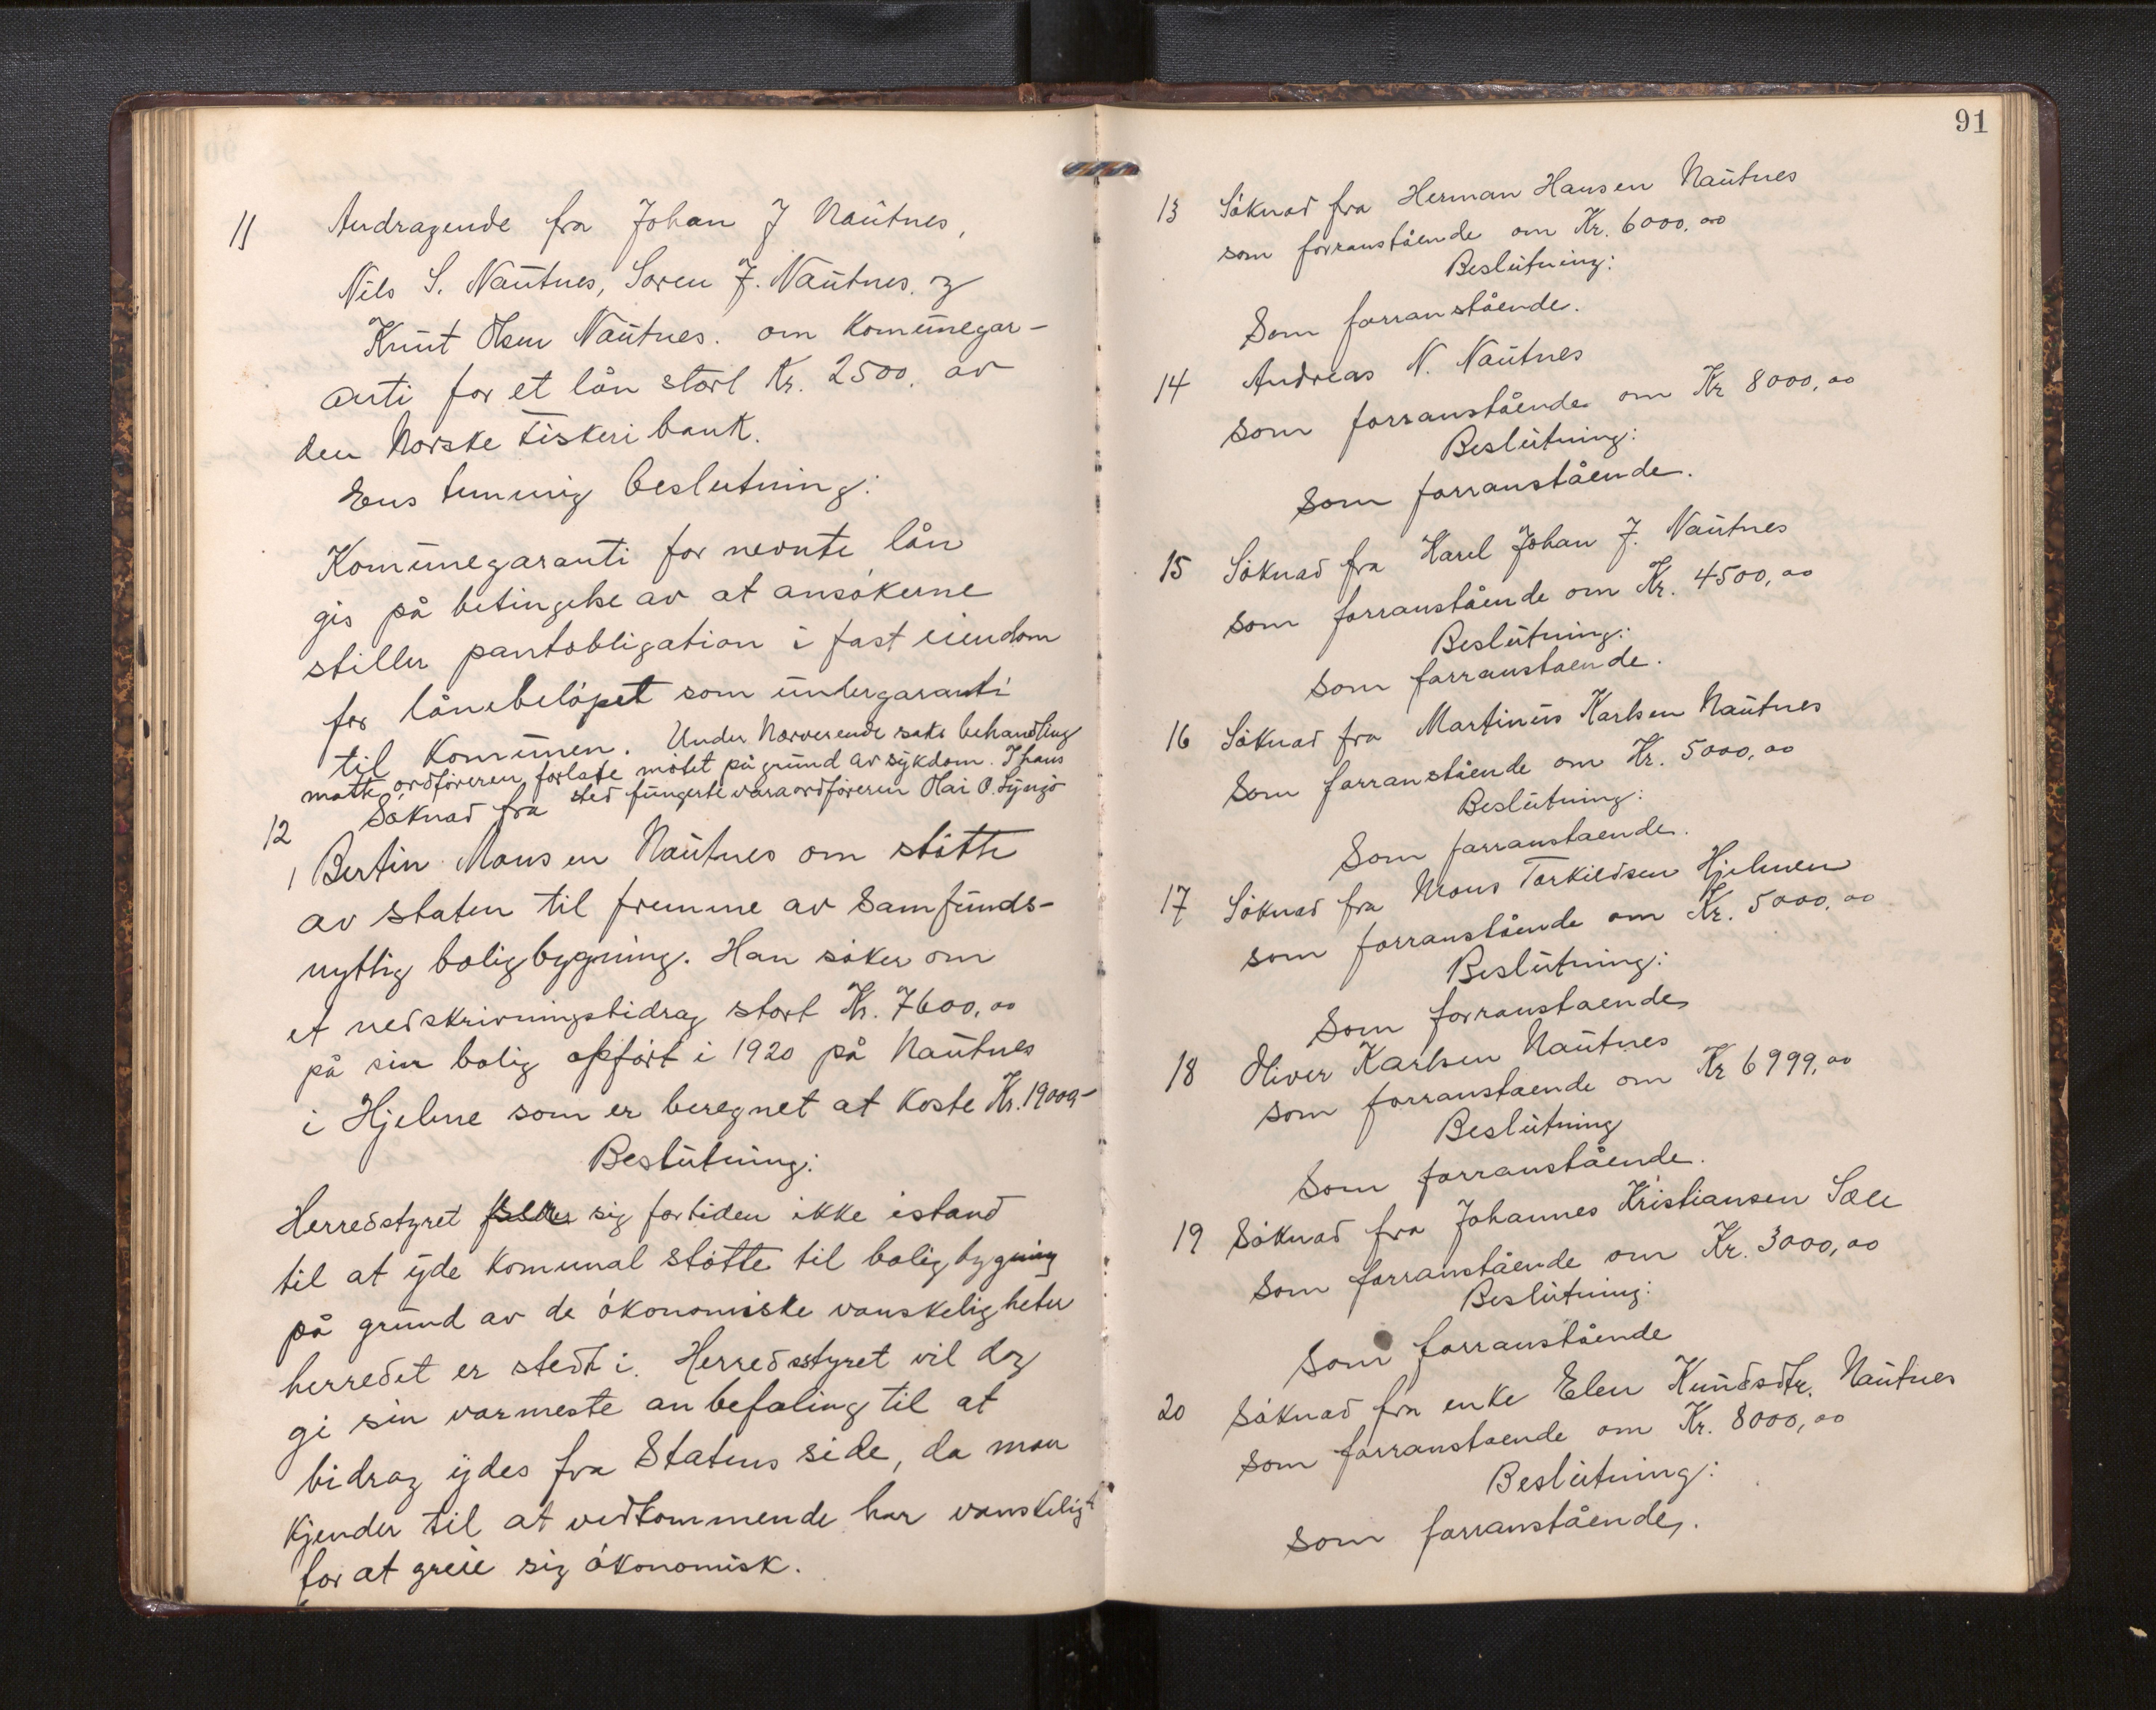 11 Andragende fra Johan J Nautnes,
Nils S. Nautnes, Soren J. Nautnes. og
Knut Olsen Nautnes. om Komunegar-
anti for et lån stort Kr. 2500. av
den Norske Fiskeribank.
Enstemmig beslutning:
Komunegaranti for nevnte lån
gis på betingelse av at ansökerne
stiller pantobligation i fast eiendom
for lånebelöpet som undergaranti
til Komunen. Under Nærverende saks behandling
måtte ordföreren forlate mötet på grund av sykdom. I hans
sted fungerte varaordföreren
12 Söknad fra
Bertin Monsen Nautnes om stötte
av staten til fremme av Samfunds-
nyttig boligbygning. Han söker om
et nedskrivningsbidrag stort Kr. 7600,00
på sin bolig opfört i 1920 på Nautnes
i Hjelme som er beregnet at koste Kr. 19000-
Beslutning:
Herredstyret sig fortiden ikke istand
til at yde Komunal stötte til boligbygning
på grund av de ökonomiske vanskeligheter
herredet er stedt i. Herredsstyret vil dog
gi sin varmeste anbefaling til at
bidrag ydes fra Statens side, da man
kjender til at vedkommende har vanskeligt
for at greie sig ökonomisk.
91
13 Söknad fra Herman Hansen Nautnes
som forranstående om Kr. 6000,00
Beslutning:
Som forranstående.
14 Andreas N. Nautnes
som forranstående om Kr 8000,00
Beslutning:
Som forranstående.
15 Söknad fra Karel Johan J. Nautnes
som forranstående om Kr. 4500,00
Beslutning:
Som forranstaende.
16 Söknad fra Martinus Karlsen Nautnes
Som forranstående om Kr. 5000,00
Beslutning:
Som forranstaende.
17 Söknad fra Mons Torkildsen Hjelmen
som forranstående om Kr. 5000,00
Beslutning:
Som forranstaende
18 Oliver Karlsen Nautnes
som forranstaende om Kr 6999,00
Beslutning
Som forranstående.
19 Söknad fra Johannes Kristiansen Sæle
Som forranstående om Kr. 3000,00
Beslutning:
Som forranstående
20 Söknad fra enke Elen Knudsdtr. Nautnes
Som forranstaende om Kr. 8000,00
Beslutning:
Som forranstående.